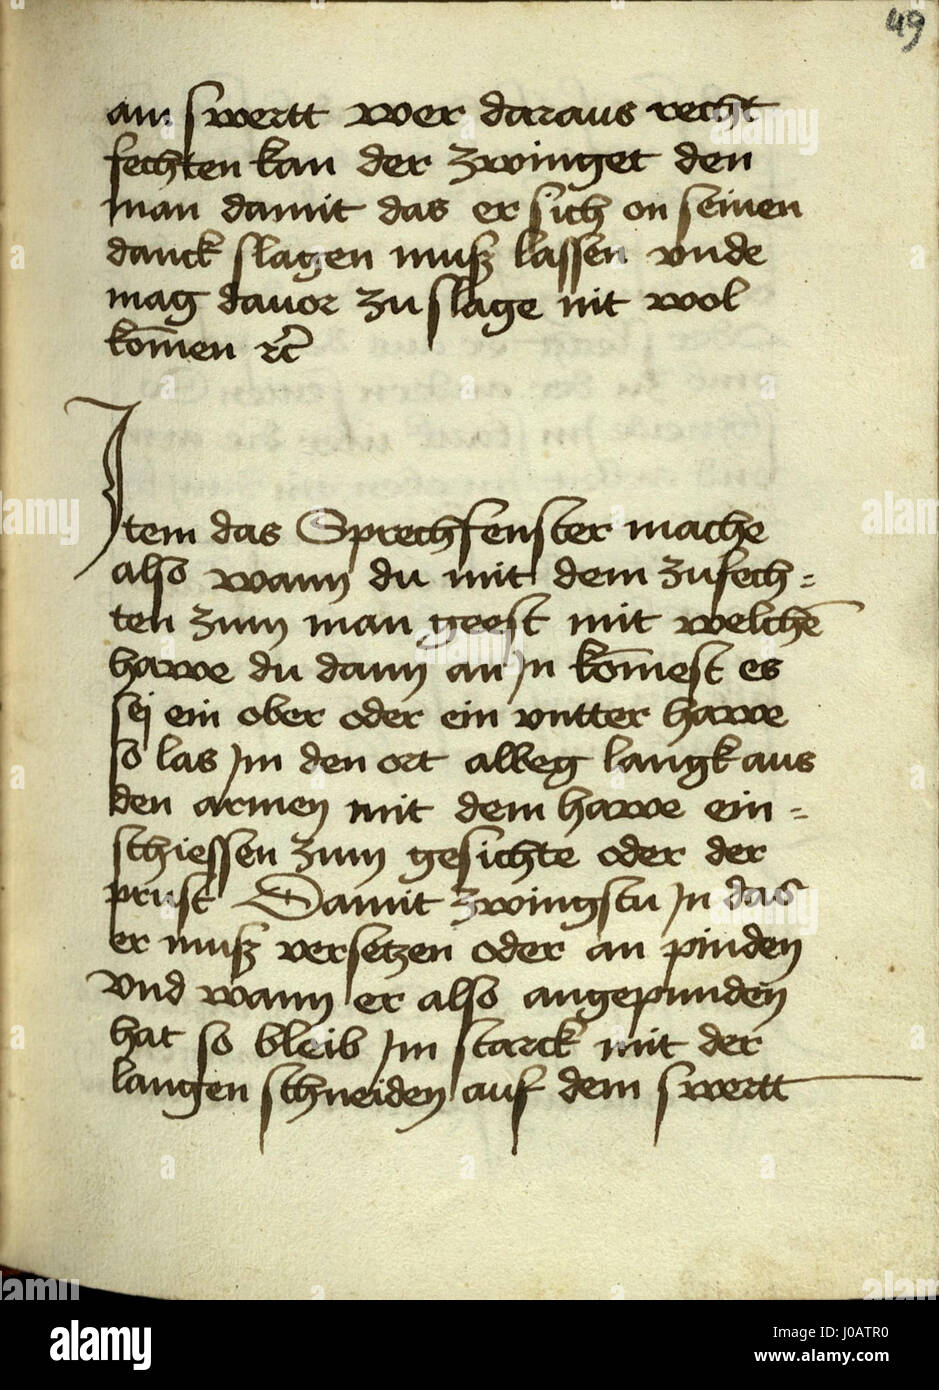 49
am swertt wer daraus recht
fechten kan der zwinget den
man damit das er sich on seinen
danck slagen muß lassen vnde
mag dauor zu slage nit wol
kom̄en ꝛc̃
Item das Sprechfenster mache
also wann du mit dem zufech=
ten zum man geest mit welchē
hawe du dann an jn kom̄est es
sej ein ober oder ein vntter hawe
so las jm den ort albeg langk aus
den armen mit dem hawe ein=
schiessen zum gesichte oder der
prust Damit zwingstu jn das
er muß versetzen oder an pinden
Vnd wann er also angepunden
hat so bleib jm starck mit der
langen schneiden auf dem swertt
alamy
Image ID: J0ATR0
www.alamy.com